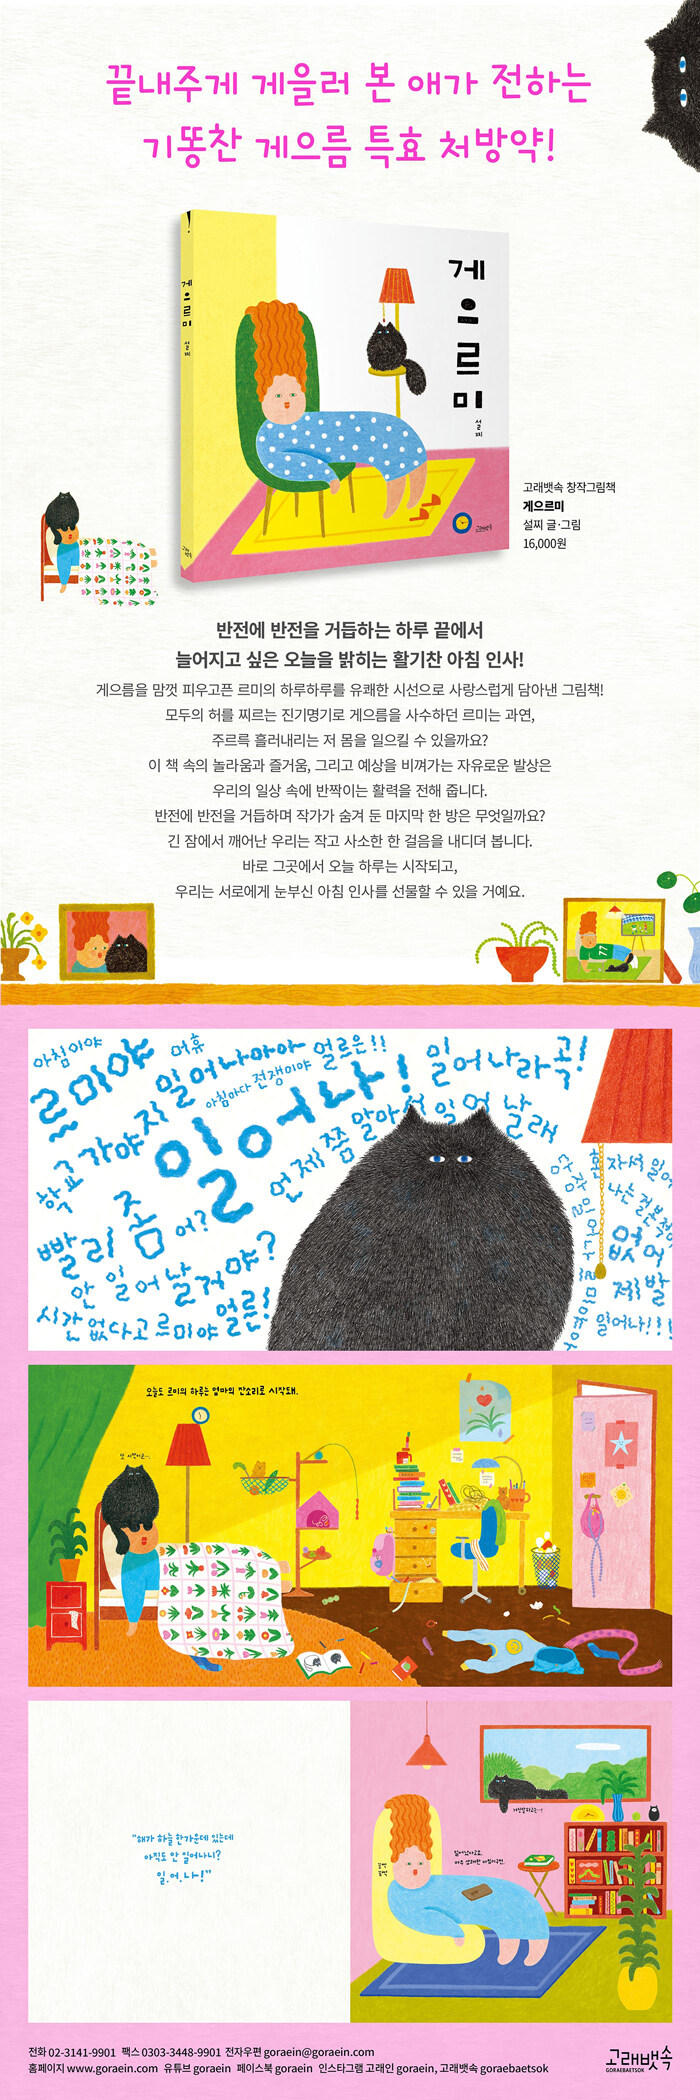 끝내주게 게을러 본 애가 전하는
기똥찬 게으름 특효 처방약!
게으르미
설찌
게으르미
설찌
고래뱃속
고래뱃속 창작그림책
게으르미
설찌 글·그림
16,000원
반전에 반전을 거듭하는 하루 끝에서
늘어지고 싶은 오늘을 밝히는 활기찬 아침 인사!
게으름을 맘껏 피우고픈 르미의 하루하루를 유쾌한 시선으로 사랑스럽게 담아낸 그림책!
모두의 허를 찌르는 진기명기로 게으름을 사수하던 르미는 과연,
주르륵 흘러내리는 저 몸을 일으킬 수 있을까요?
이 책 속의 놀라움과 즐거움, 그리고 예상을 비껴가는 자유로운 발상은
우리의 일상 속에 반짝이는 활력을 전해 줍니다.
반전에 반전을 거듭하며 작가가 숨겨 둔 마지막 한 방은 무엇일까요?
긴 잠에서 깨어난 우리는 작고 사소한 한 걸음을 내디뎌 봅니다.
바로 그곳에서 오늘 하루는 시작되고,
우리는 서로에게 눈부신 아침 인사를 선물할 수 있을 거예요.
77
아침이야
르미야
어휴
일어나아아
얼르은!!
일어나라 쫌!
아침마다 전쟁이야
학교 가야지
일어나!
언제쯤 알아서 일어날래
빨리 좀
어?
안 일어날거야?
시간 없다고 르미야 얼른!
당장 일어나 르미야
자식 일어
나는 걸 본 적이
없어
제발
일어나!!!
오늘도 르미의 하루는 엄마의 잔소리로 시작돼.
또 시작이군…
"해가 하늘 한가운데 있는데
아직도 안 일어나니?
일.어.나!"
거짓말하고는…!
일어났다고요.
아주 상쾌한 아침이라고요.
끔뻑
끔뻑
전화 02-3141-9901 팩스 0303-3448-9901 전자우편 goraein@goraein.com
홈페이지 www.goraein.com 유튜브 goraein 페이스북 goraein 인스타그램 고래인 goraein, 고래뱃속 goraebaetsok
고래뱃속
GORAEBAETSOK